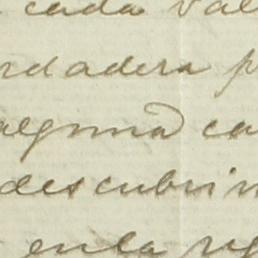 cada val
rdadera p
alguna ca
descubrim
en la reg